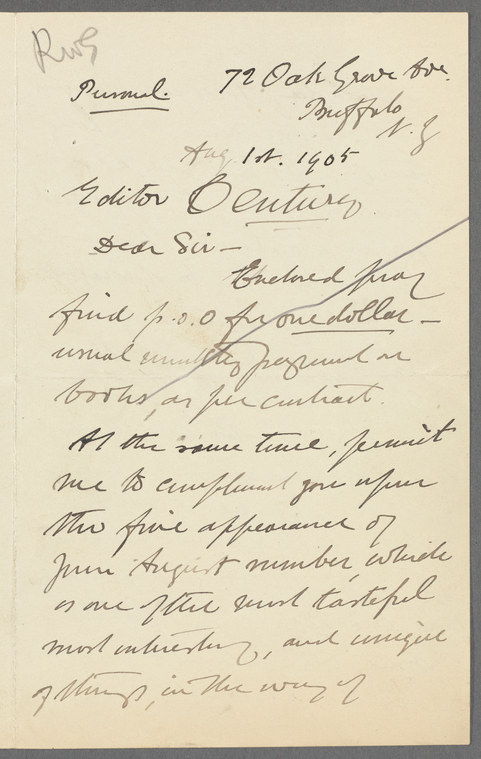 RWG
Personal.
72 Oak Grove Ave.
Buffalo
N. Y
Aug 1st. 1905
Editor Century
Dear Sir —
Enclosed pray
find p.o.O for one dollar —
usual monthly payment on
books, as per contract.
At the same time, permit
me to compliment you upon
the fine appearance of
your August number, which
is one of the most tasteful
most interesting, and unique
of things, in the way of